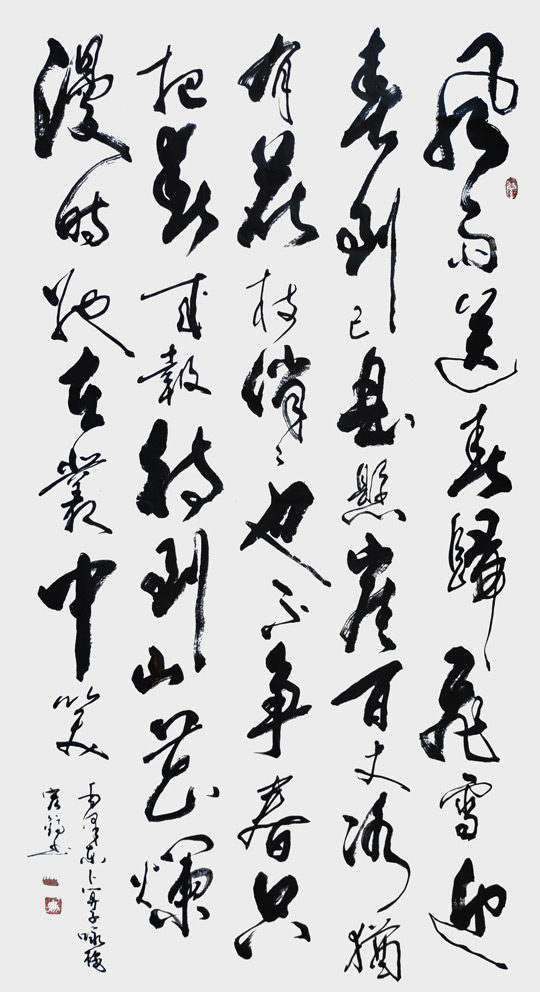 風雨送春歸飛雪迎
春到已是懸崖百丈冰猶
有花枝俏〻也不争春只
把春来報待到山花爛
漫時她在叢中笑
毛澤東卜算子咏梅